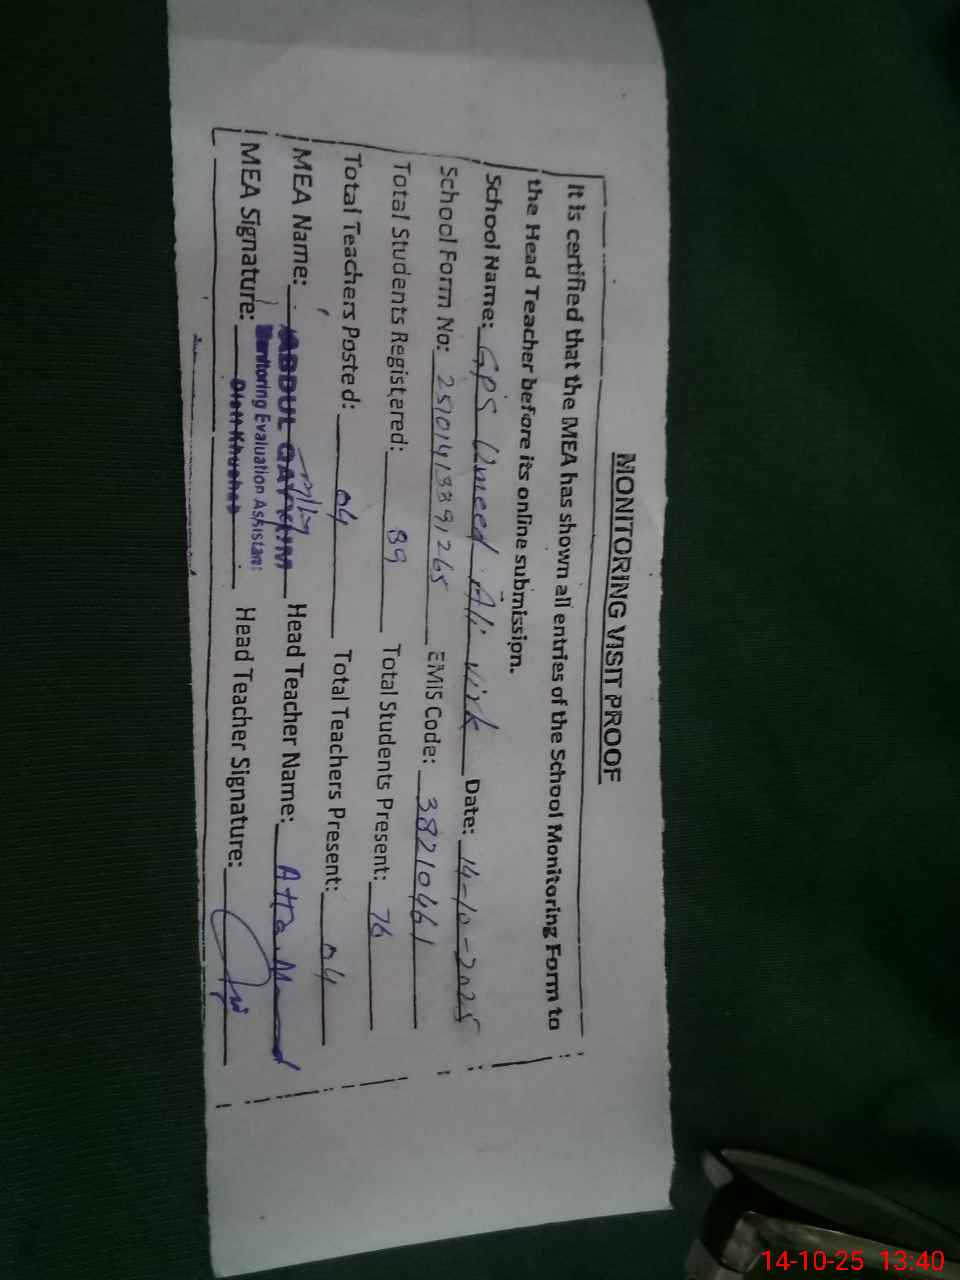 MONITORING VISIT PROOF
It is certified that the MEA has shown all entries of the School Monitoring Form to
the Head Teacher before its online submission.
School Name: GPS Umeed Ali Virk Date: 14-10-2025
School Form No: EMIS Code: 38210461
Total Students Registered: 89 Total Students Present: 76
Total Teachers Posted: 04 Total Teachers Present: 04
MEA Name: ABDUL QAYYUM Head Teacher Name: Atta M
Monitoring Evaluation Assistant
MEA Signature: Head Teacher Signature:
14-10-25 13:40